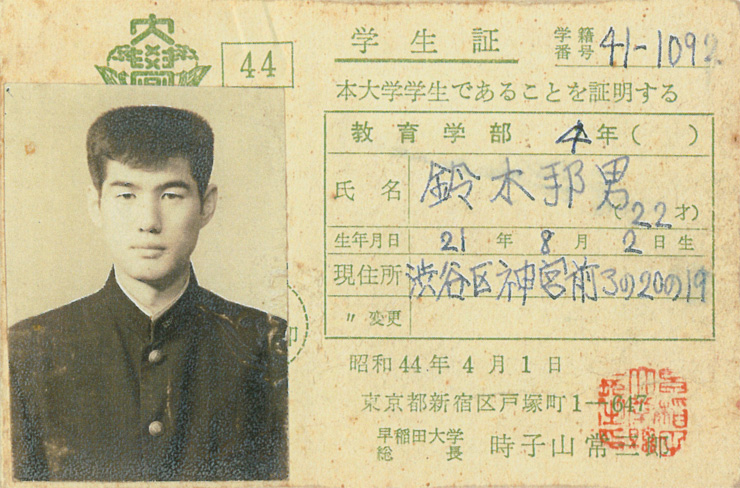 大學
44
学生証
学籍番号 41-1092
本大学学生であることを証明する
教育学部 4年( )
氏名 鈴木邦男 (22才)
生年月日 21年8月2日生
現住所 渋谷区神宮前3の20の19
〃 変更
印
昭和44年4月1日
東京都新宿区戸塚町1-647
早稲田大学総長 時子山常三郎